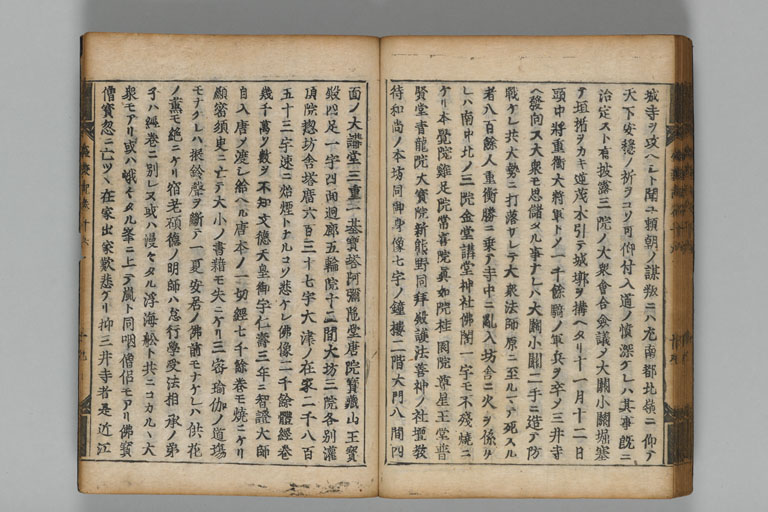 城寺ヲ攻ヘシト聞ユ頼朝ノ謀叛ニハ尤南都北嶺ニ仰テ
天下安穏ノ祈ヲコソ可仰付入道ノ慎深ケレハ其事既ニ
治定スト有披露三院ノ大衆會合僉議メ大關小關堀塞
テ垣楯ヲカキ逆茂木引テ城槨ヲ搆ヘタリ十一月十二日
頭中將重衡大將軍トメ一千餘騎ノ軍兵ヲ卒メ三井寺
ヘ發向ス大衆モ思儲タル事ナレハ大關小關二手ニ造テ防
戰ケレ共大勢ニ打落サレテ大衆法師原ニ至ルマテ死スル
者八百餘人重衡勝ニ乗テ寺中ニ亂入坊舎ニ火ヲ係タリ
シハ南中北ノ三院金堂講堂神社佛閣一宇モ不殘燒ニ
ケリ本覺院雞足院常喜院真如院桂園院尊星王堂普
賢堂青龍院大寶院新熊野同拜殿護法善神ノ社壇教
待和尚ノ本坊同御身像七宇ノ鐘樓二階大門八間四
面ノ大講堂三重ニ一基寶塔阿彌陀堂唐院寶藏山王寶
殿四足一宇四面廻廊五輪院十二間大坊三院各別灌
頂院惣坊舎塔廟六百三十七宇大津ノ在家二千八百
五十三宇速ニ焔煙トナルコソ悲ケレ佛像二千餘體經巻
幾千萬ヲ數ヲ不知文徳天皇御宇仁壽三年ニ智證大師
自入唐メ渡シ給ヘル唐本ノ一切經七千餘巻モ燒ニケリ
顕密須臾ニ亡テ大小ノ書籍モ失ニケリ三密瑜伽ノ道場
モナケレハ振鈴聲ヲ斷テ一夏安居ノ佛前モナケレハ供花
ノ薫モ絶ニケリ宿老碩徳ノ明師ハ怠行學受法相承ノ弟
子ハ經巻ニ別レヌ或ハ漫々タル浮海舩ト共ニコカルヽ大
衆モアリ或ハ峨々タル峯ニ上テ嵐ト同咽僧侶モアリ佛寶
僧寶忽ニ亡ツヽ在家出家歎悲ケリ抑三井寺者是近江